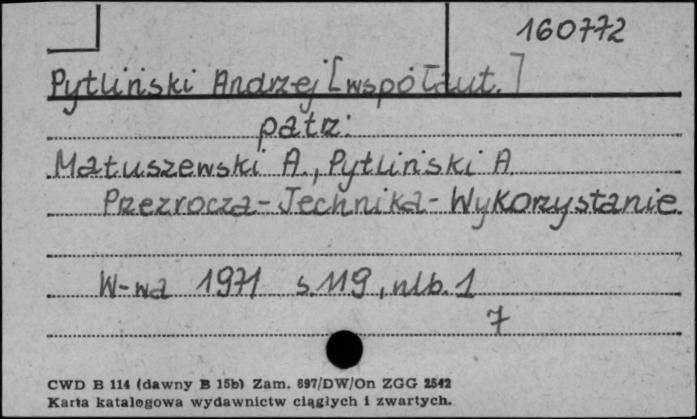 160772
Pytliński Andrzej [współaut.]
patrz:
Matuszewski A., Pytliński A
Przezrocza - Technika - Wykorzystanie.
W-wa 1971 s. 119, nlb. 1
7
CWD B 114 (dawny B 15b) Zam. 897/DW/On ZGG 2542
Karta katalogowa wydawnictw ciągłych i zwartych.